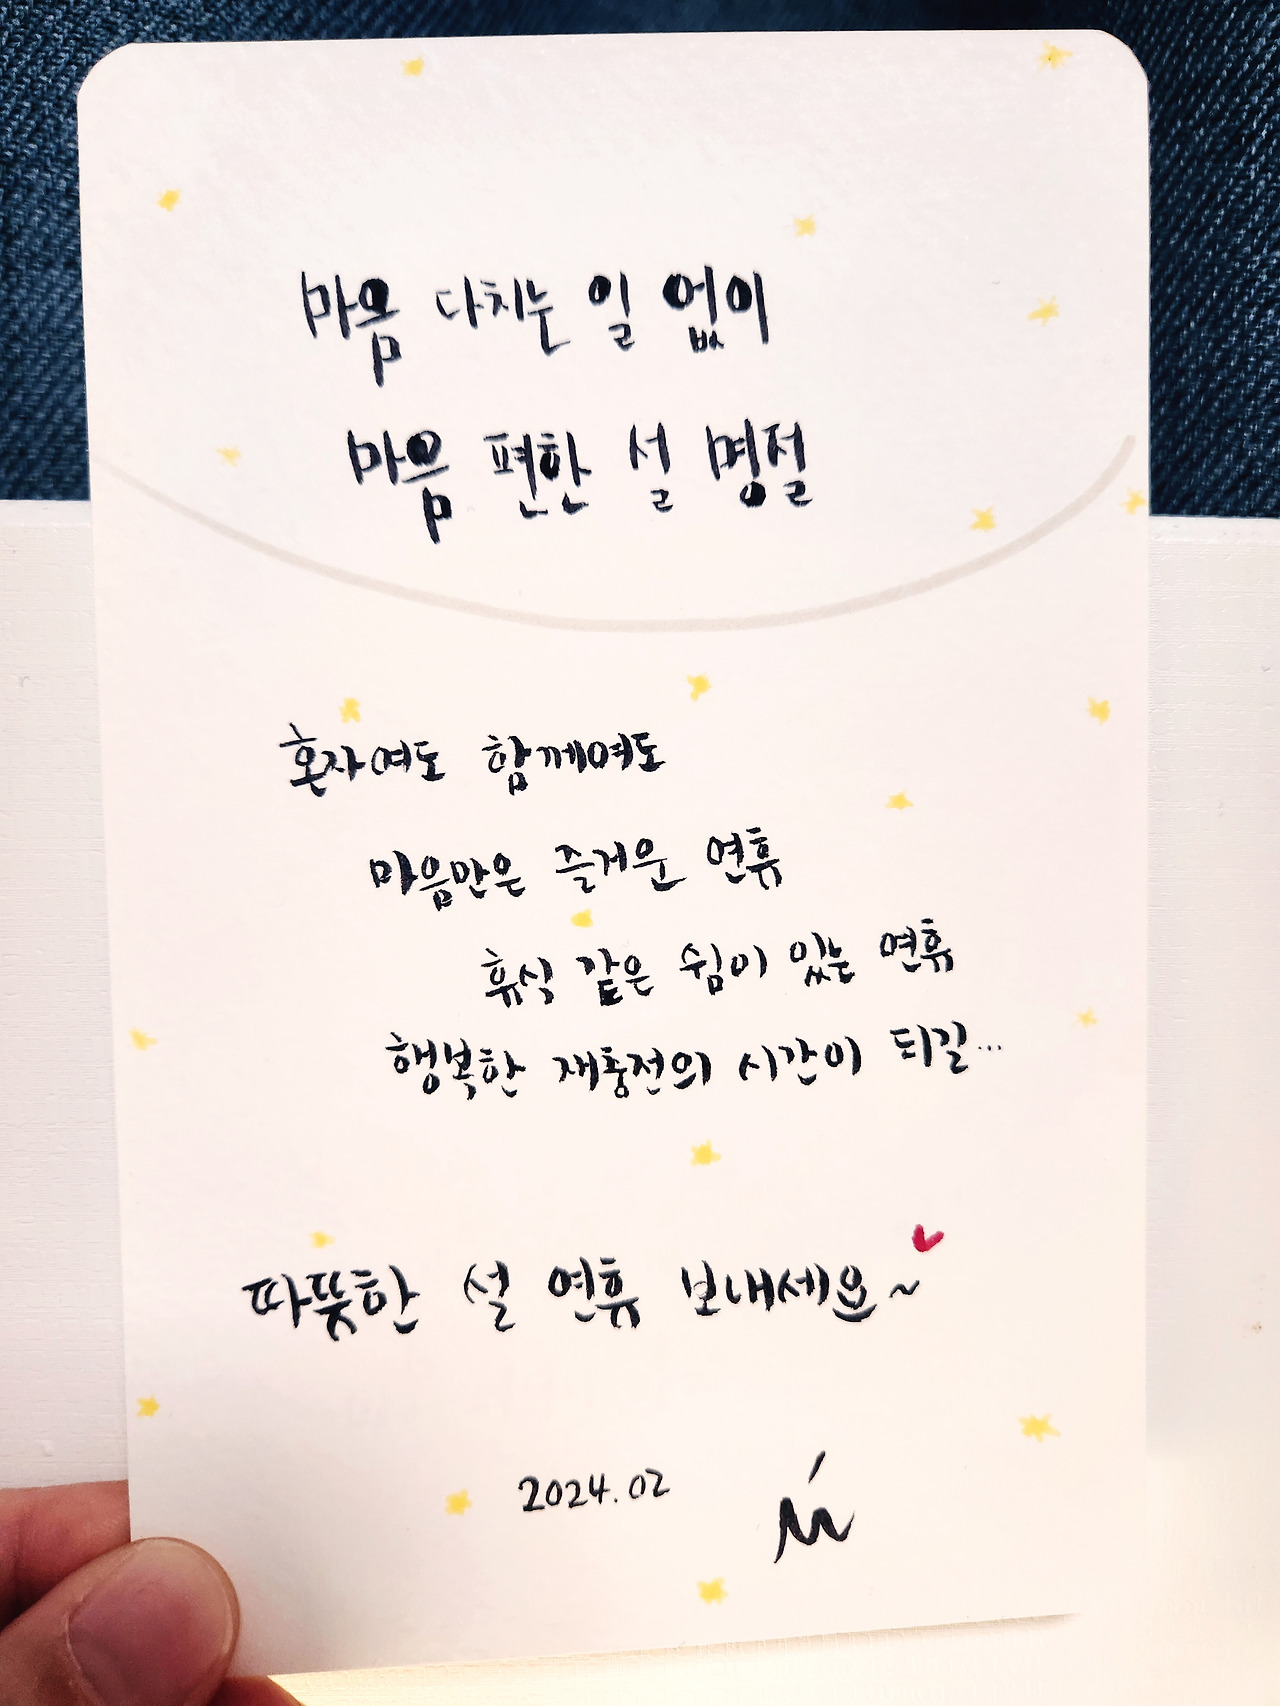 마음 다치는 일 없이
마음 편한 설 명절
혼자여도 함께여도
마음만은 즐거운 연휴
휴식 같은 쉼이 있는 연휴
행복한 재충전의 시간이 되길...
따뜻한 설 연휴 보내세요~
2024.02